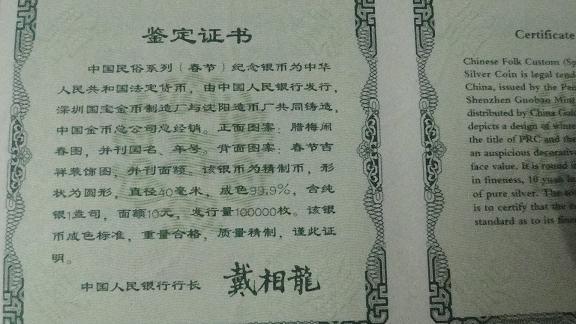 鉴定证书
中国民俗系列（春节）纪念银币为中华
人民共和国法定货币，由中国人民银行发行，
深圳国宝金币制造厂与沈阳造币厂共同铸造，
中国金币总公司总经销。正面图案：腊梅闹
春图，并刊国名、年号。背面图案：春节吉
祥装饰图，并刊面额。该银币为精制币，形
状为圆形，直径40毫米，成色99.9%，含纯
银1盎司，面额10元，发行量100000枚。该银
币成色标准，重量合格，质量精制，谨此证
明。
中国人民银行行长 戴相龍
Certificate
Chinese Folk Custom (Sp
Silver Coin is legal tend
China, issued by the Peo
Shenzhen Guobao Ming
distributed by China Gold
depicts a design of winte
the title of PRC and the
an auspicious decorativ
face value. It is round i
in fineness, 10 yuan
of pure silver. The
is to certify that the
standard as to its fine